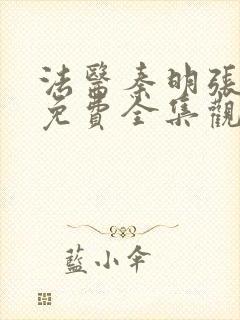 法醫秦明張
免費全集觀
藍小傘